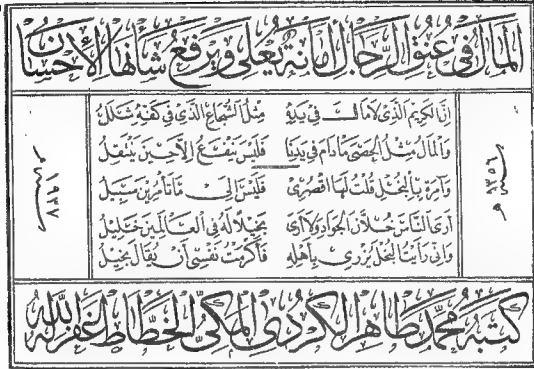 المال في عنق الرجال أمانة يعلى ويرفع شأنها الإحسان
إن الكريم الذي لا مال في يده مثل الشجاع الذي في كفه شلل
والمال مثل الحصى ما دام في يدنا فليس ينفع إلا حين ينتقل
وآمرة بالبخل قلت لها اقصري فليس إلى ما تأمرين سبيل
أرى الناس خلان الجواد ولا أرى بخيلا له في العالمين خليل
وإني رأيت البخل يزري بأهله فأكرمت نفسي أن يقال بخيل
١٣٥٦
١٩٣٧
كتبه محمد طاهر الكردي المكي الخطاط غفر الله له